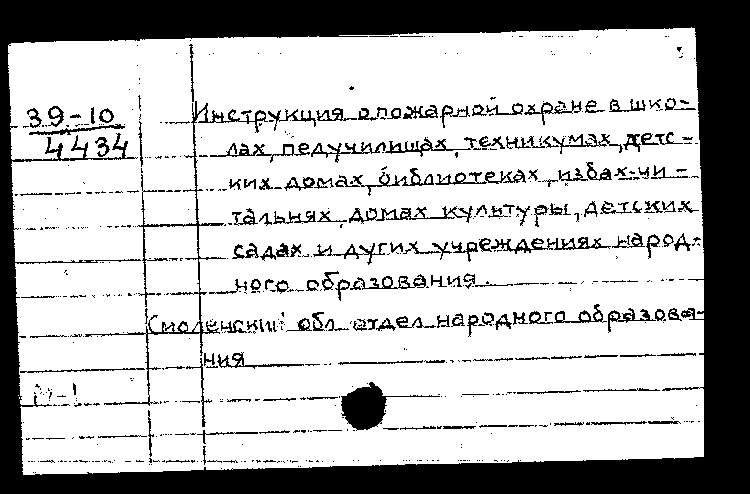 39-10
4434
Инструкция о пожарной охране в шко-
лах, педучилищах, техникумах, детс-
ких домах, библиотеках, избах-чи-
тальнях, домах культуры, детских
садах и дугих учреждениях народ-
ного образования.
Смоленский обл. отдел народного образова-
ния